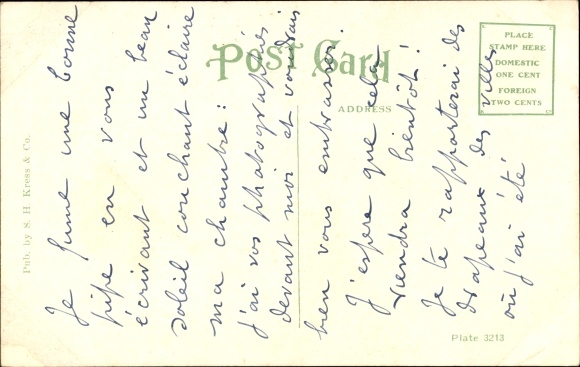 Je fume une bonne
pipe en vous
écrivant et un beau
soleil couchant éclaire
ma chambre :
j'ai vos photographies
devant moi et voudrais
bien vous embrasser.
J'espère que cela
viendra bientôt !
Je te rapporterai des
drapeaux des villes
où j'ai été
POST CARD
ADDRESS
PLACE
STAMP HERE
DOMESTIC
ONE CENT
FOREIGN
TWO CENTS
Pub. by S. H. Kress & Co.
Plate 3213